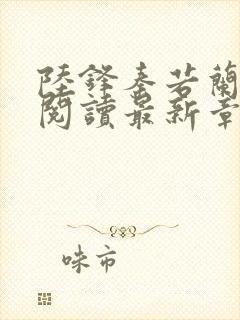 陸鋒秦若蘭
閱讀最新章
咪市